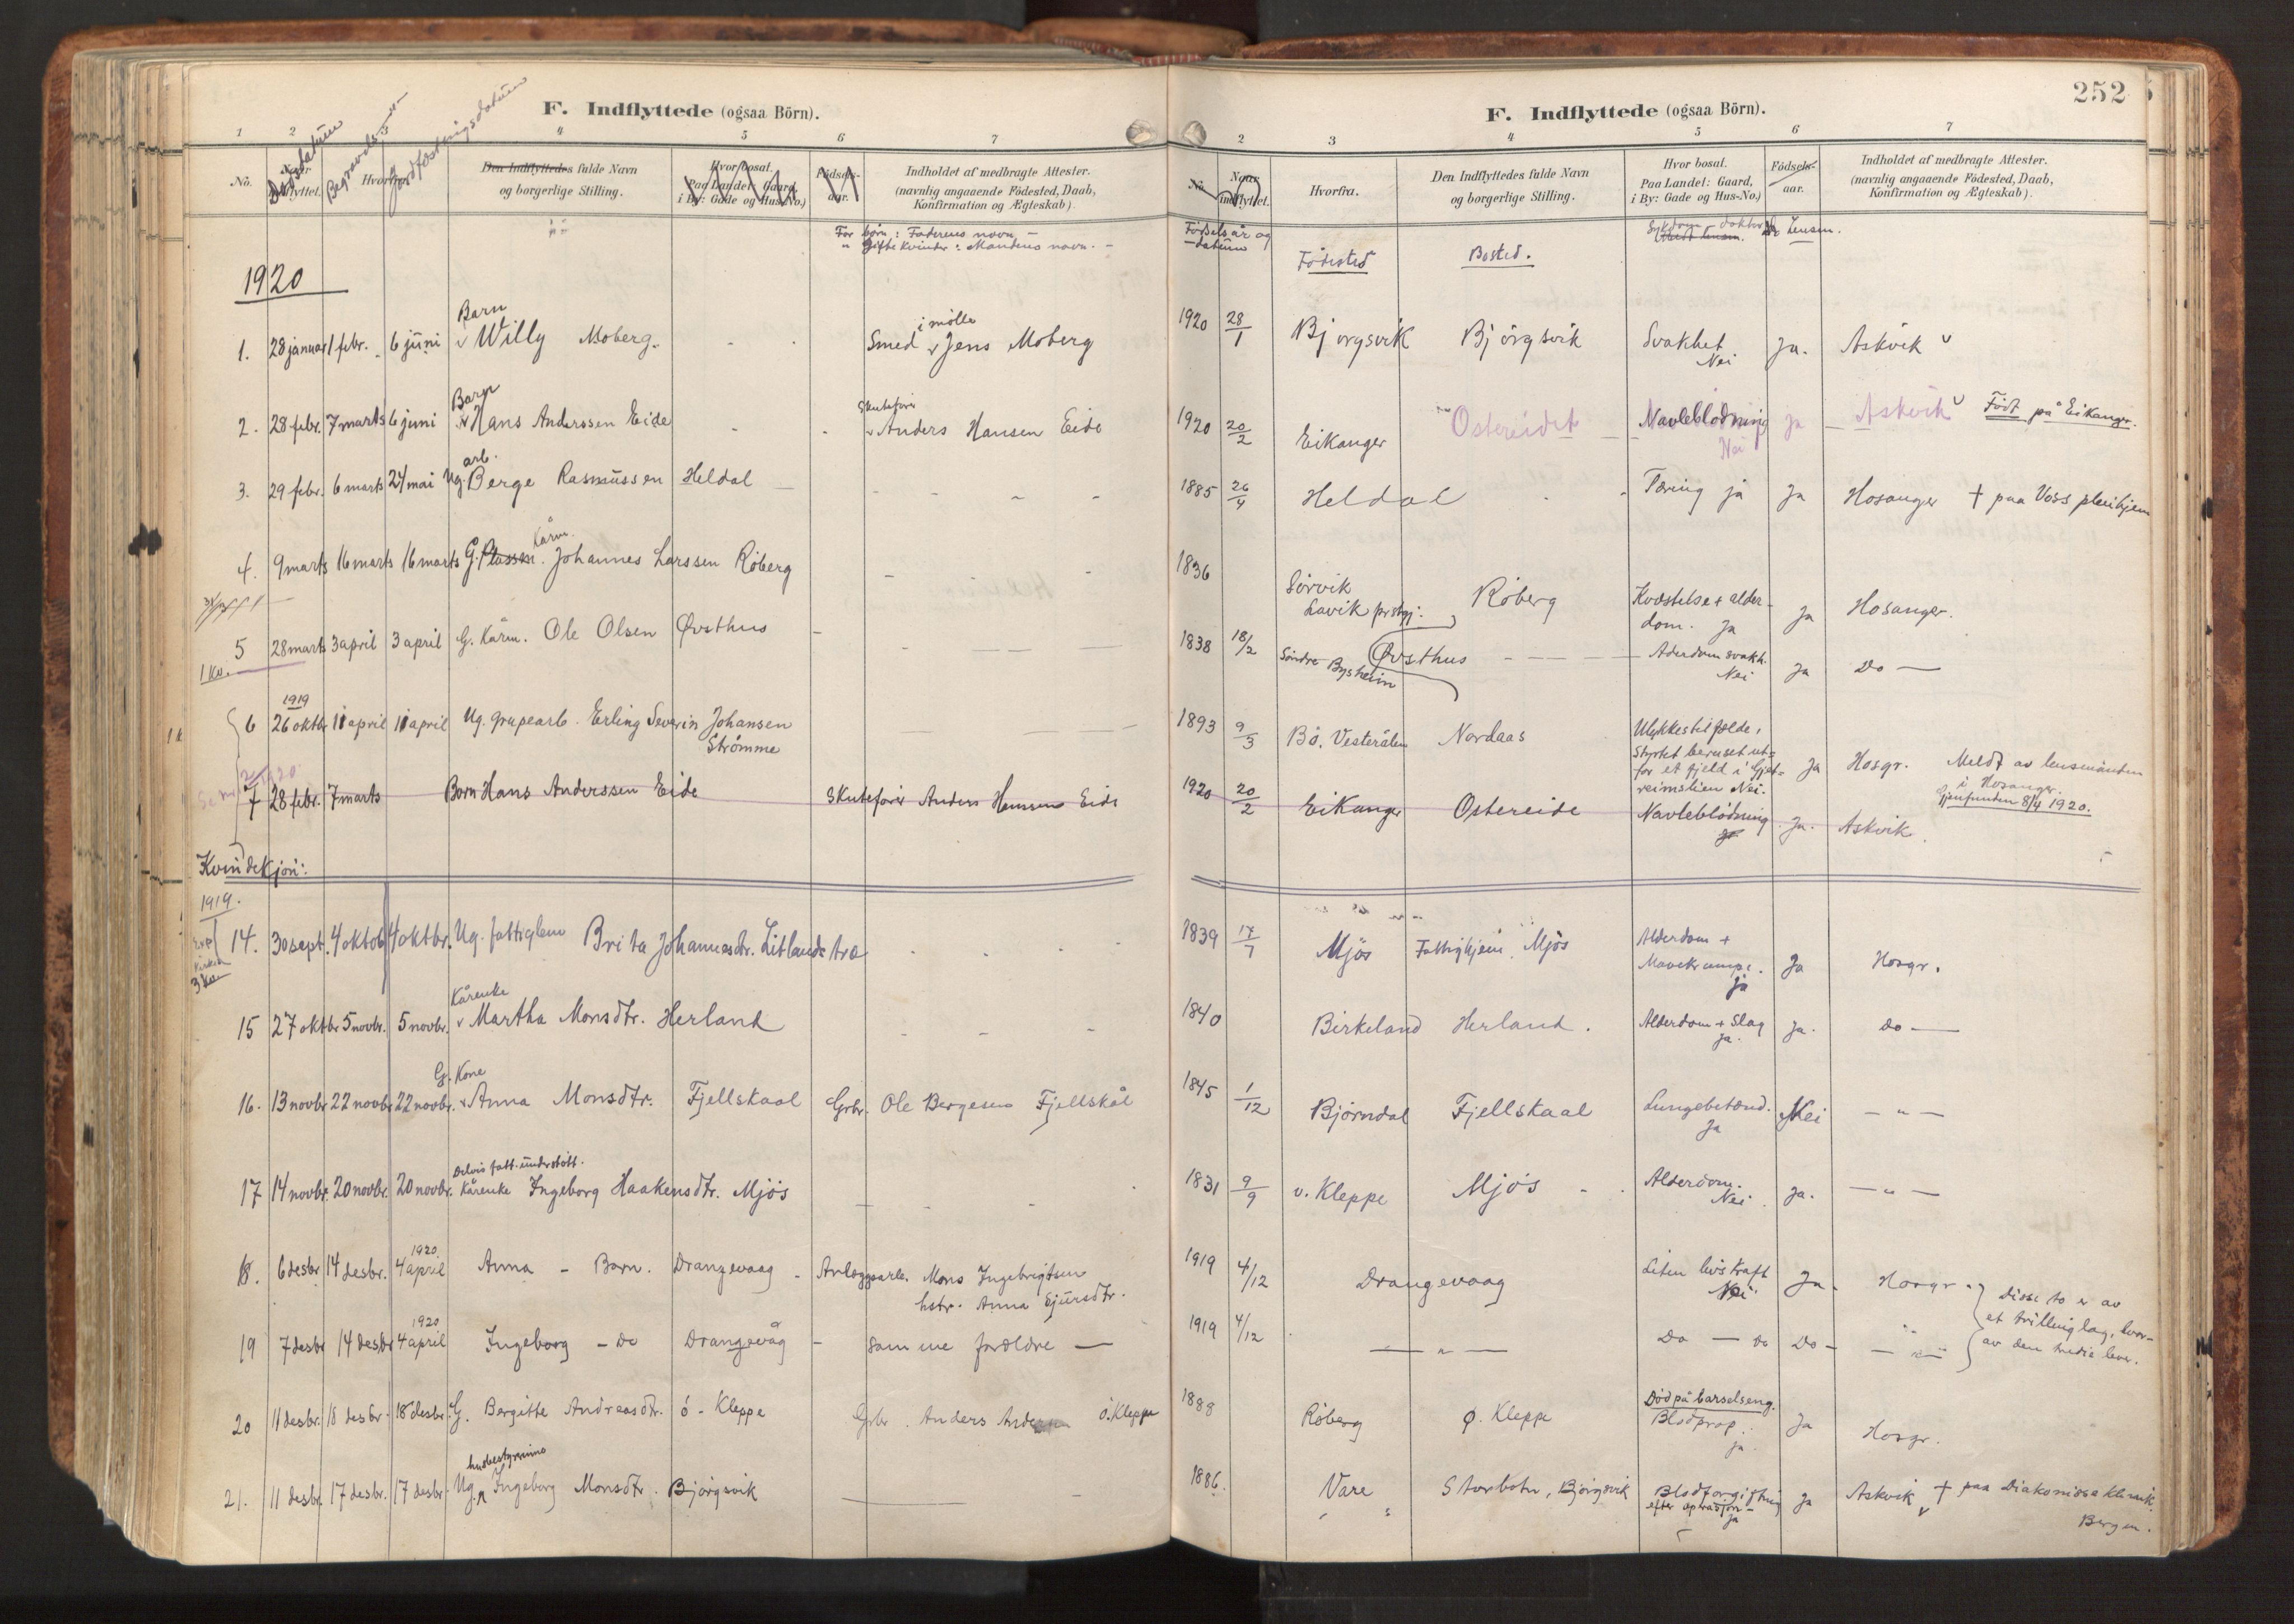 252
F. Indflyttede (ogsaa Börn).
1 2 3 4 5 6 7
Dødsdatum
Begravels
Jordfæstningsdatum
No. Naar indflyttet. Hvorfra. Den Indflyttedes fulde Navn og borgerlige Stilling. Hvor bosat. Paa Landet: Gaard, i By: Gade og Hus-No.) Födsels-aar. Indholdet af medbragte Attester. (navnlig angaaende Födested, Daab, Konfirmation og Ægteskab).
For børn: Faderens navn. –
" Gifte kvinder: Mandens navn. –
1920
1. 28 januar 1 febr. 6 juni Barn Willy Moberg. Smed i mølle Jens Moberg
2. 28 febr. 7 marts 6 juni Barn Hans Anderssen Eide Skutefører Anders Hansen Eide
3. 29 febr. 6 marts 24 mai Ug. arb. Berge Rasmussen Heldal
4. 9 marts 16 marts 16 marts G. Plassm. Kårm. Johannes Larssen Röberg
5 28 marts 3 april 3 april G. Kårm. Ole Olsen Øvsthus
1 kv.
6 1919 26 oktbr 11 april 11 april Ug. grupearb. Erling Severin Johansen
Strömme
7 28 febr. 7 marts Barn Hans Anderssen Eide Skutefører Anders Hansen Eide
Kvindekjön:
1919.
14. 30 sept. 4 oktob 4 oktbr. Ug. fattiglem Brita Johannesdtr. Litlandstræ
15 27 oktbr 5 novbr. 5 novbr. Kårenke Martha Monsdtr. Herland
16. 13 novbr 22 novbr 22 novbr. G. Kone Anna Monsdtr. Fjellskaal Grbr. Ole Bergesen Fjellskål
17 14 novbr. 20 novbr. 20 novbr. Delvis fatt. understött. Kårenke Ingeborg Haakensdtr. Mjös
18. 6 desbr 14 desbr. 1920 4 april Anna – Barn. Drangevaag – Anlægsarb. Mons Ingebrigtsen
hstr. Anna Sjursdtr.
19 7 desbr 14 desbr 1920 4 april Ingeborg – Do Drangevåg – samme forældre —
20 11 desbr. 18 desbr. 18 desbr. G. Bergitte Andreasdtr. ö. Kleppe Grbr. Anders ö. Kleppe
21. 11 desbr. 17 desbr. 17 desbr Ug. husbestyrerinne Ingeborg Monsdtr. Bjørgsvik
F. Indflyttede (ogsaa Börn).
2 3 4 5 6 7
No. Naar indflyttet. Hvorfra. Den Indflyttedes fulde Navn og borgerlige Stilling. Hvor bosat. Paa Landet: Gaard, i By: Gade og Hus-No.) Födsels-aar. Indholdet af medbragte Attester. (navnlig angaaende Födested, Daab, Konfirmation og Ægteskab).
Fødselsår og
– datum Fødested Bosted. Sykdom – doktor Lensm.
1920 28/1 Bjorgsvik Bjørgsvik Svakhet Nei Ja. Askvik
1920 20/2 Eikanger Ostereidet Navleblødning Nei ja Askvik Født på Eikanger.
1885 26/4 Heldal Tæring ja Ja Hosanger † paa Voss pleiehjem
1836 Sörvik
Lavik prstgj. Röberg Kvæstelse + alder-
dom. Ja Ja Hosanger.
1838 18/2 Söndre Bysheim Øvsthus Alderdom svakh. Nei Ja Do —
1893 9/3 Bö. Vesterålen Nordaas Ulykkestilfælde,
styrtet beruset ut-
for et fjeld i Gjet-
reimslien Nei. Ja Hosgr. Meldt av lensmanden
i Hosanger.
Gjenfunden 8/4 1920.
1920 20/2 Eikanger Ostereide Navleblödning Ja. Askvik.
1839 17/7 Mjös Fattighjem Mjös Alderdom +
Mavekrampe. Ja Ja Hosgr.
1840 Birkeland Herland. Alderdom + Slag ja. Ja. do —
1845 1/12 Björndal Fjellskaal Lungebetænd. Ja Nei — " —
1831 9/9 v. Kleppe Mjös Alderdom. Nei Ja. — " —
1919 4/12 Drangevaag Liten livskraft Nei Ja Hosgr. Disse to er av
et trillinglag, hvor-
av den tredie lever.
1919 4/12 — " — Do — do Do – — " —
1888 Röberg ø. Kleppe Død på barselseng.
Blodprop. ja Ja Hosgr.
1886. Vare Storbotn, Björgsvik Blodforgiftning
efter operasjon – ja Ja Askvik † paa Diakonisse klinik.
Bergen.